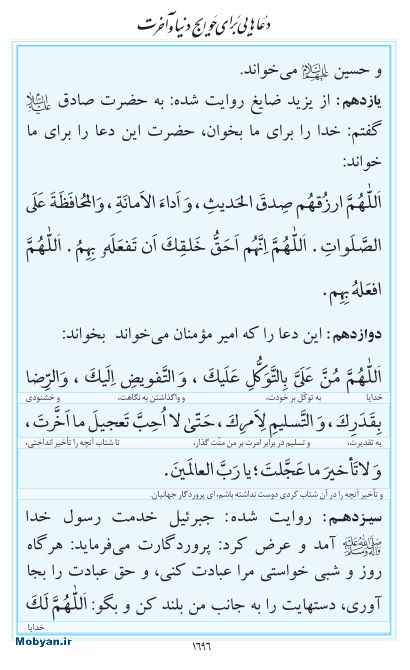 دعاهایی برای حوایج دنیا و آخرت
و حسین علیهم‌السلام می‌خواند.
یازدهم: از یزید ضایغ روایت شده: به حضرت صادق علیه‌السلام
گفتم: خدا را برای ما بخوان، حضرت این دعا را برای ما
خواند:
اَللّٰهُمَّ ارزُقهُم صِدقَ الحَديثِ، وَ اَداءَ الاَمانَةِ، وَ المُحافَظَةَ عَلَى
الصَّلَواتِ. اَللّٰهُمَّ اِنَّهُم اَحَقُّ خَلقِكَ اَن تَفعَلَهُ بِهِمُ. اَللّٰهُمَّ
افعَلهُ بِهِم.
دوازدهم: این دعا را که امیر مؤمنان می‌خواند بخواند:
اَللّٰهُمَّ مُنَّ عَلَىَّ بِالتَّوَكُّلِ عَلَيكَ، وَ التَّفويضِ اِلَيكَ، وَ الرِّضا
خدایا به توکّل بر خودت، و واگذاشتن به نگاهت، و خشنودی
بِقَدَرِكَ، وَ التَّسليمِ لِاَمرِكَ، حَتّىٰ لا اُحِبَّ تَعجيلَ ما اَخَّرتَ،
به تقدیرت، و تسلیم در برابر امرت بر من منّت گذار، تا شتاب آنچه را تأخیر انداختی،
وَ لا تَأخيرَ ما عَجَّلتَ؛ يا رَبَّ العالَمينَ.
و تأخیر آنچه را در آن شتاب کردی دوست نداشته باشم، ای پروردگار جهانیان.
سیزدهم: روایت شده: جبرئیل خدمت رسول خدا
صلی‌الله‌علیه‌وآله‌وسلم آمد و عرض کرد: پروردگارت می‌فرماید: هرگاه
روز و شبی خواستی مرا عبادت کنی، و حق عبادت را بجا
آوری، دستهایت را به جانب من بلند کن و بگو: اَللّٰهُمَّ لَكَ
خدایا
۱۶۹۶
Mobyan.ir